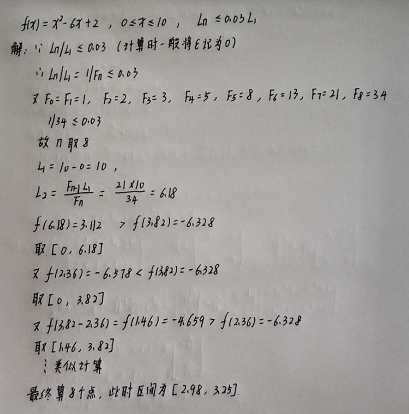 f(x) = x²-6x+2 , 0≤x≤10 , Ln≤0.03L₁
解: ∵ Ln/L₁ ≤0.03 (计算时一般将ε记为0)
∴ Ln/L₁ = 1/Fn ≤0.03
又 F₀=F₁=1, F₂=2, F₃=3, F₄=5, F₅=8, F₆=13, F₇=21, F₈=34
1/34 ≤0.03
故 n 取 8
L₁ = 10-0=10 ,
L₂ = Fn-1 L₁ / Fn = 21×10 / 34 = 6.18
f(6.18)=3.112 > f(3.82)=-6.328
取 [0, 6.18]
又 f(2.36) = -6.578 < f(3.82) = -6.328
取 [0, 3.82]
又 f(3.82-2.36) = f(1.46) = -4.659 > f(2.36) = -6.328
取 [1.46, 3.82]
⋮ 类似计算
最终算8个点, 此时区间为 [2.98, 3.25]